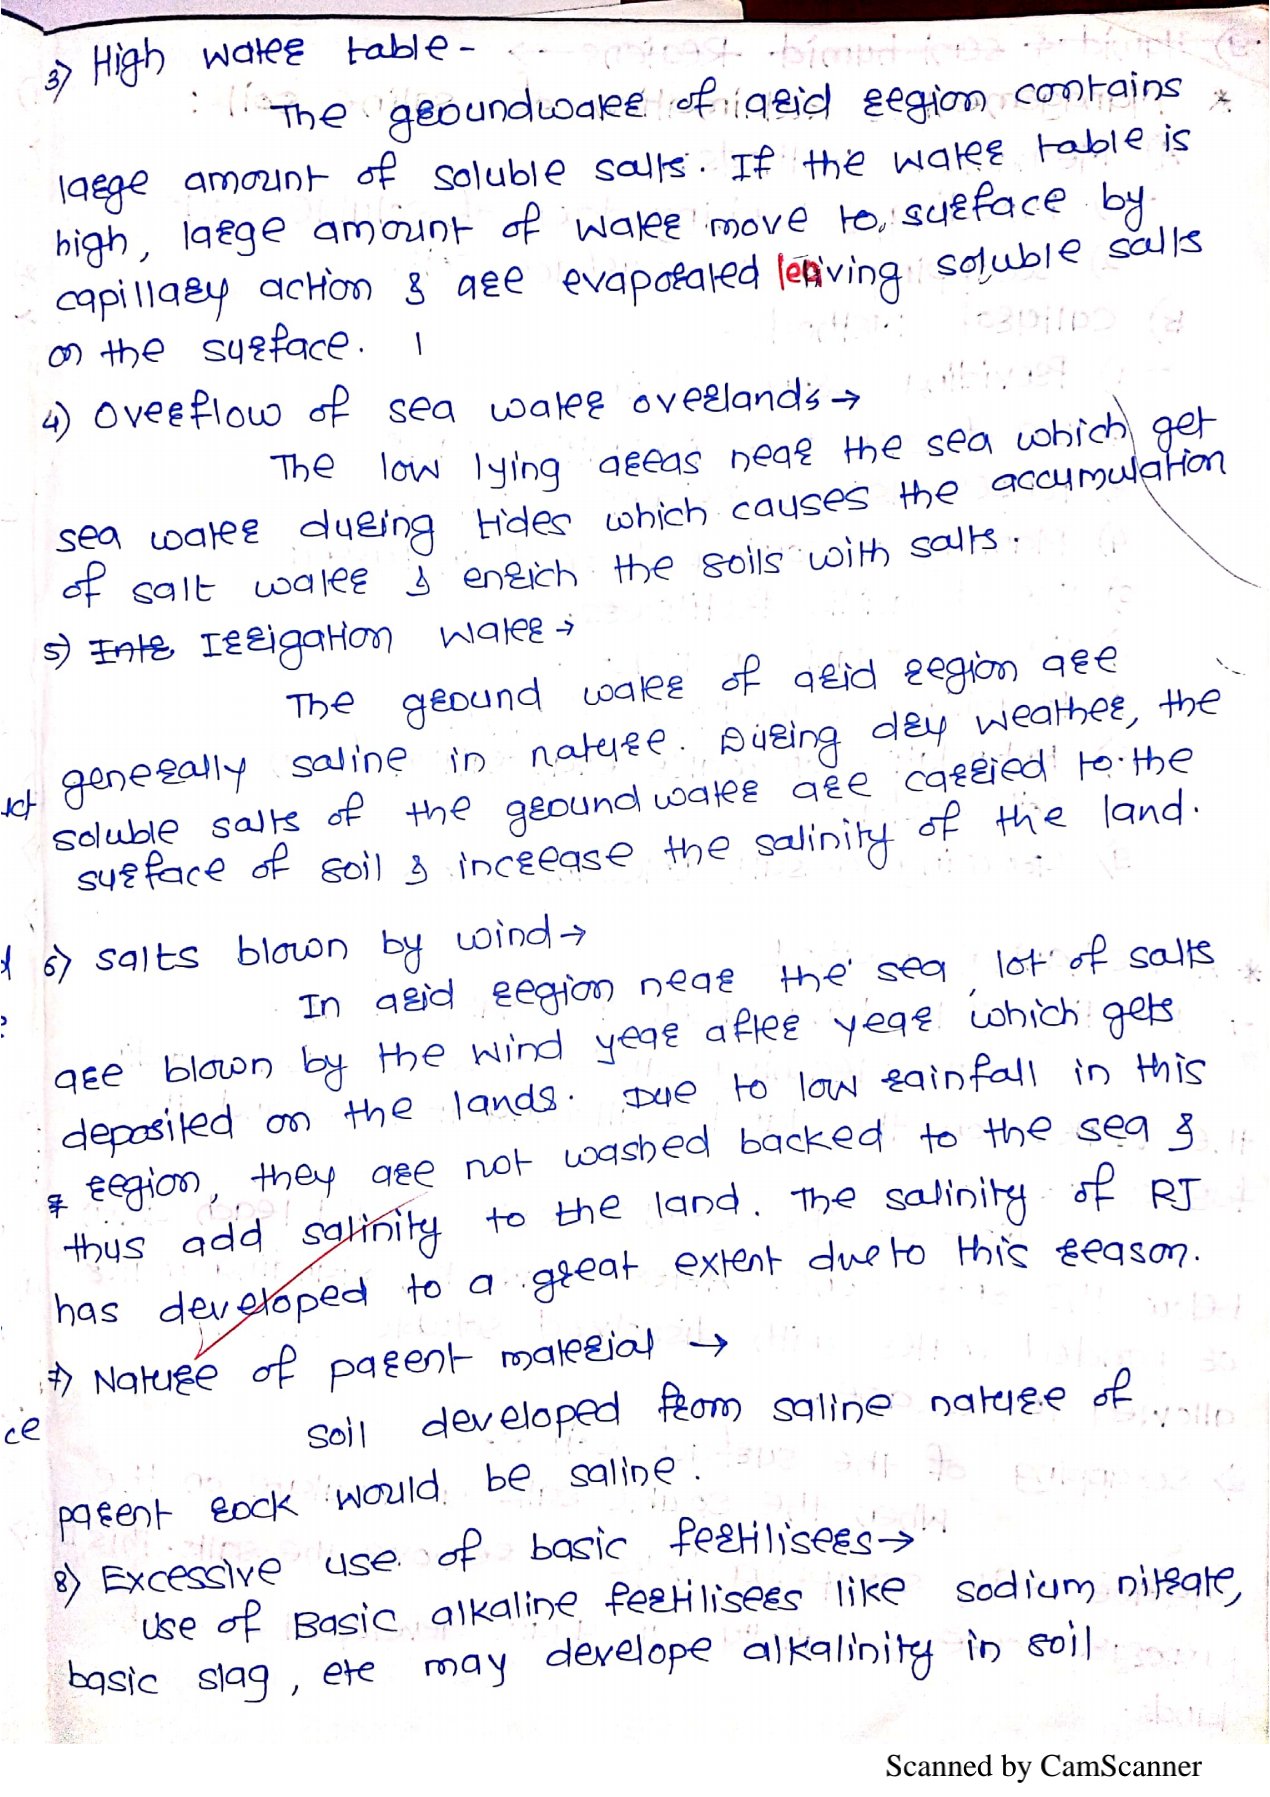 3) High water table -
The groundwater of arid region contains
large amount of soluble salts. If the water table is
high, large amount of water move to surface by
capillary action & are evaporated leaving soluble salts
on the surface.
4) Overflow of sea water overlands →
The low lying areas near the sea which get
sea water during tides which causes the accumulation
of salt water & enrich the soils with salts.
5) Inte Irrigation water →
The ground water of arid region are
generally saline in nature. During dry weather, the
soluble salts of the ground water are carried to the
surface of soil & increase the salinity of the land.
6) Salts blown by wind →
In arid region near the sea, lot of salts
are blown by the wind year after year which gets
deposited on the lands. Due to low rainfall in this
region, they are not washed backed to the sea &
thus add salinity to the land. The salinity of RJ
has developed to a great extent due to this reason.
7) Nature of parent material →
Soil developed from saline nature of
parent rock would be saline.
8) Excessive use of basic fertilisers →
Use of Basic alkaline fertilisers like sodium nitrate,
basic slag, etc may develope alkalinity in soil
Scanned by CamScanner